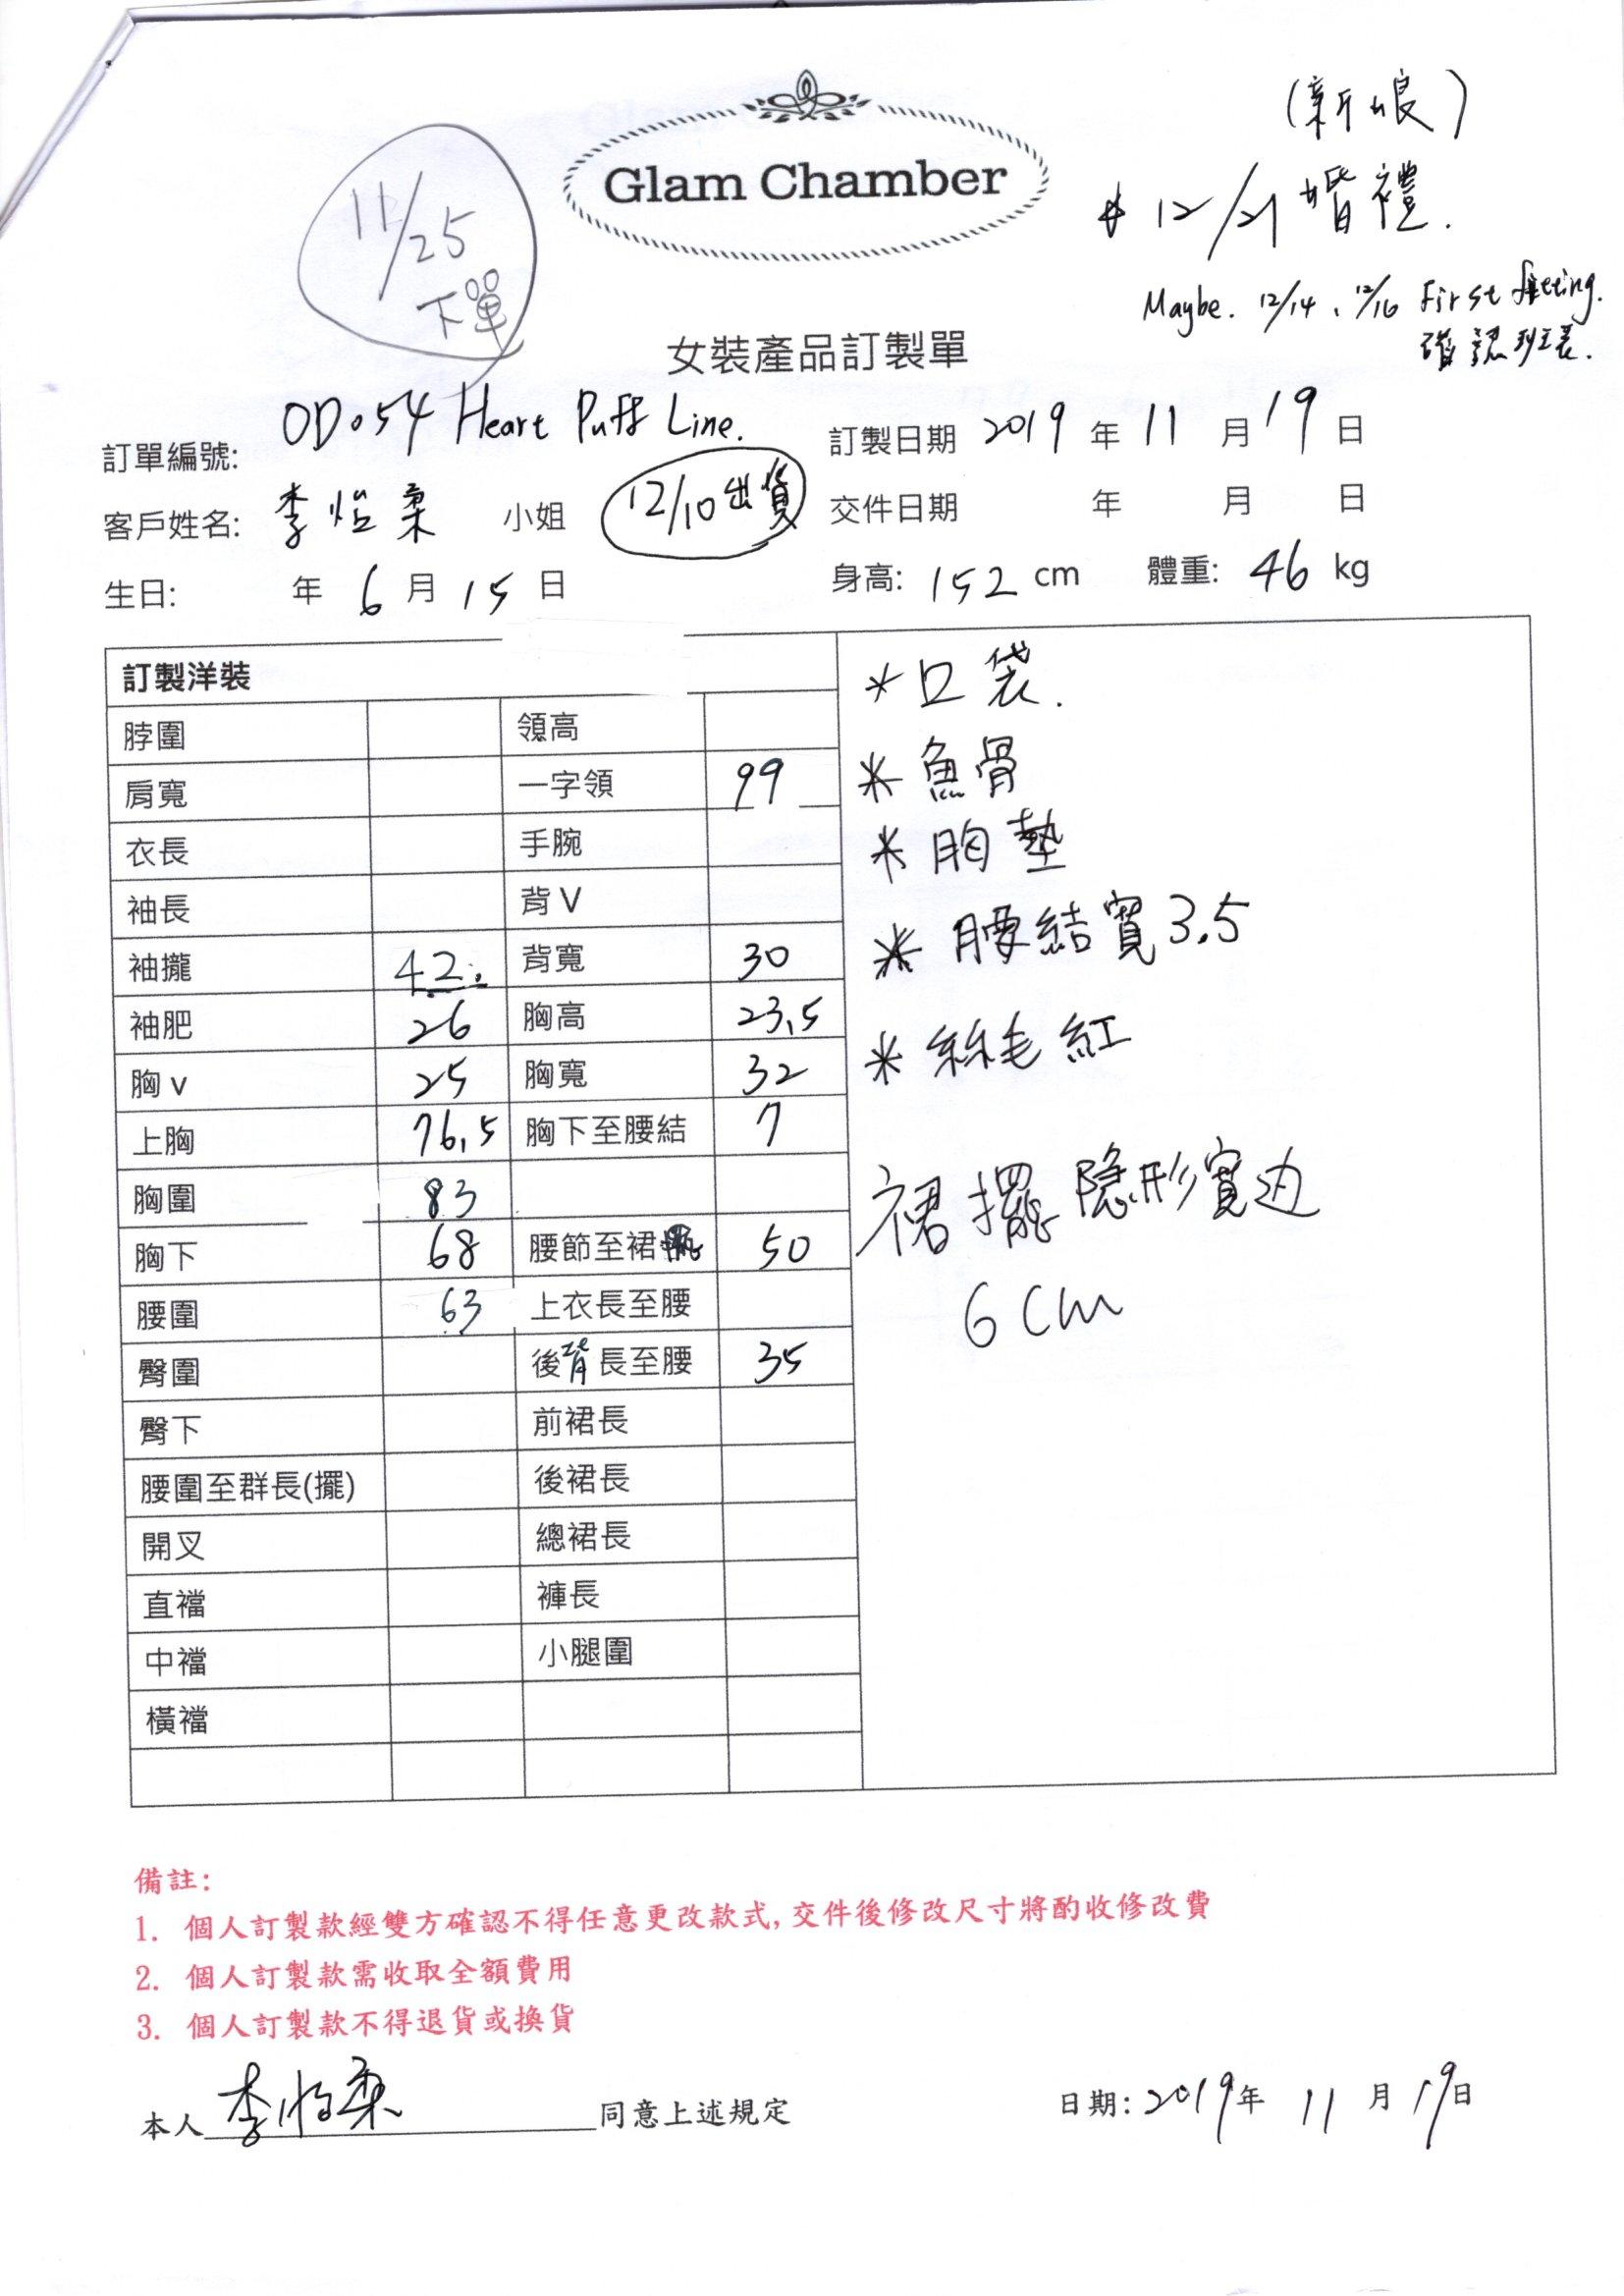 (新娘)
Glam Chamber
12/21 婚禮.
11/25
下單
Maybe. 12/14、12/16 First fitting.
確認班表.
女裝產品訂製單
訂單編號: OD054 Heart Puff Line.
訂製日期 2019 年 11 月 19 日
客戶姓名: 李怡柔 小姐 12/10出貨
交件日期 年 月 日
生日: 年 6 月 15 日
身高: 152 cm 體重: 46 kg
訂製洋裝
脖圍 領高
肩寬 一字領 99
衣長 手腕
袖長 背V
袖攏 42. 背寬 30
袖肥 26 胸高 23.5
胸v 25 胸寬 32
上胸 76.5 胸下至腰結 7
胸圍 83
胸下 68 腰節至裙 50
腰圍 63 上衣長至腰
臀圍 後背長至腰 35
臀下 前裙長
腰圍至群長(擺) 後裙長
開叉 總裙長
直襠 褲長
中襠 小腿圍
橫襠
*口袋.
*魚骨
*胸墊
*腰結寬3.5
*絲毛紅
裙擺隱形寬边
6cm
備註:
1. 個人訂製款經雙方確認不得任意更改款式,交件後修改尺寸將酌收修改費
2. 個人訂製款需收取全額費用
3. 個人訂製款不得退貨或換貨
本人 李怡柔 同意上述規定
日期: 2019年 11 月 19日